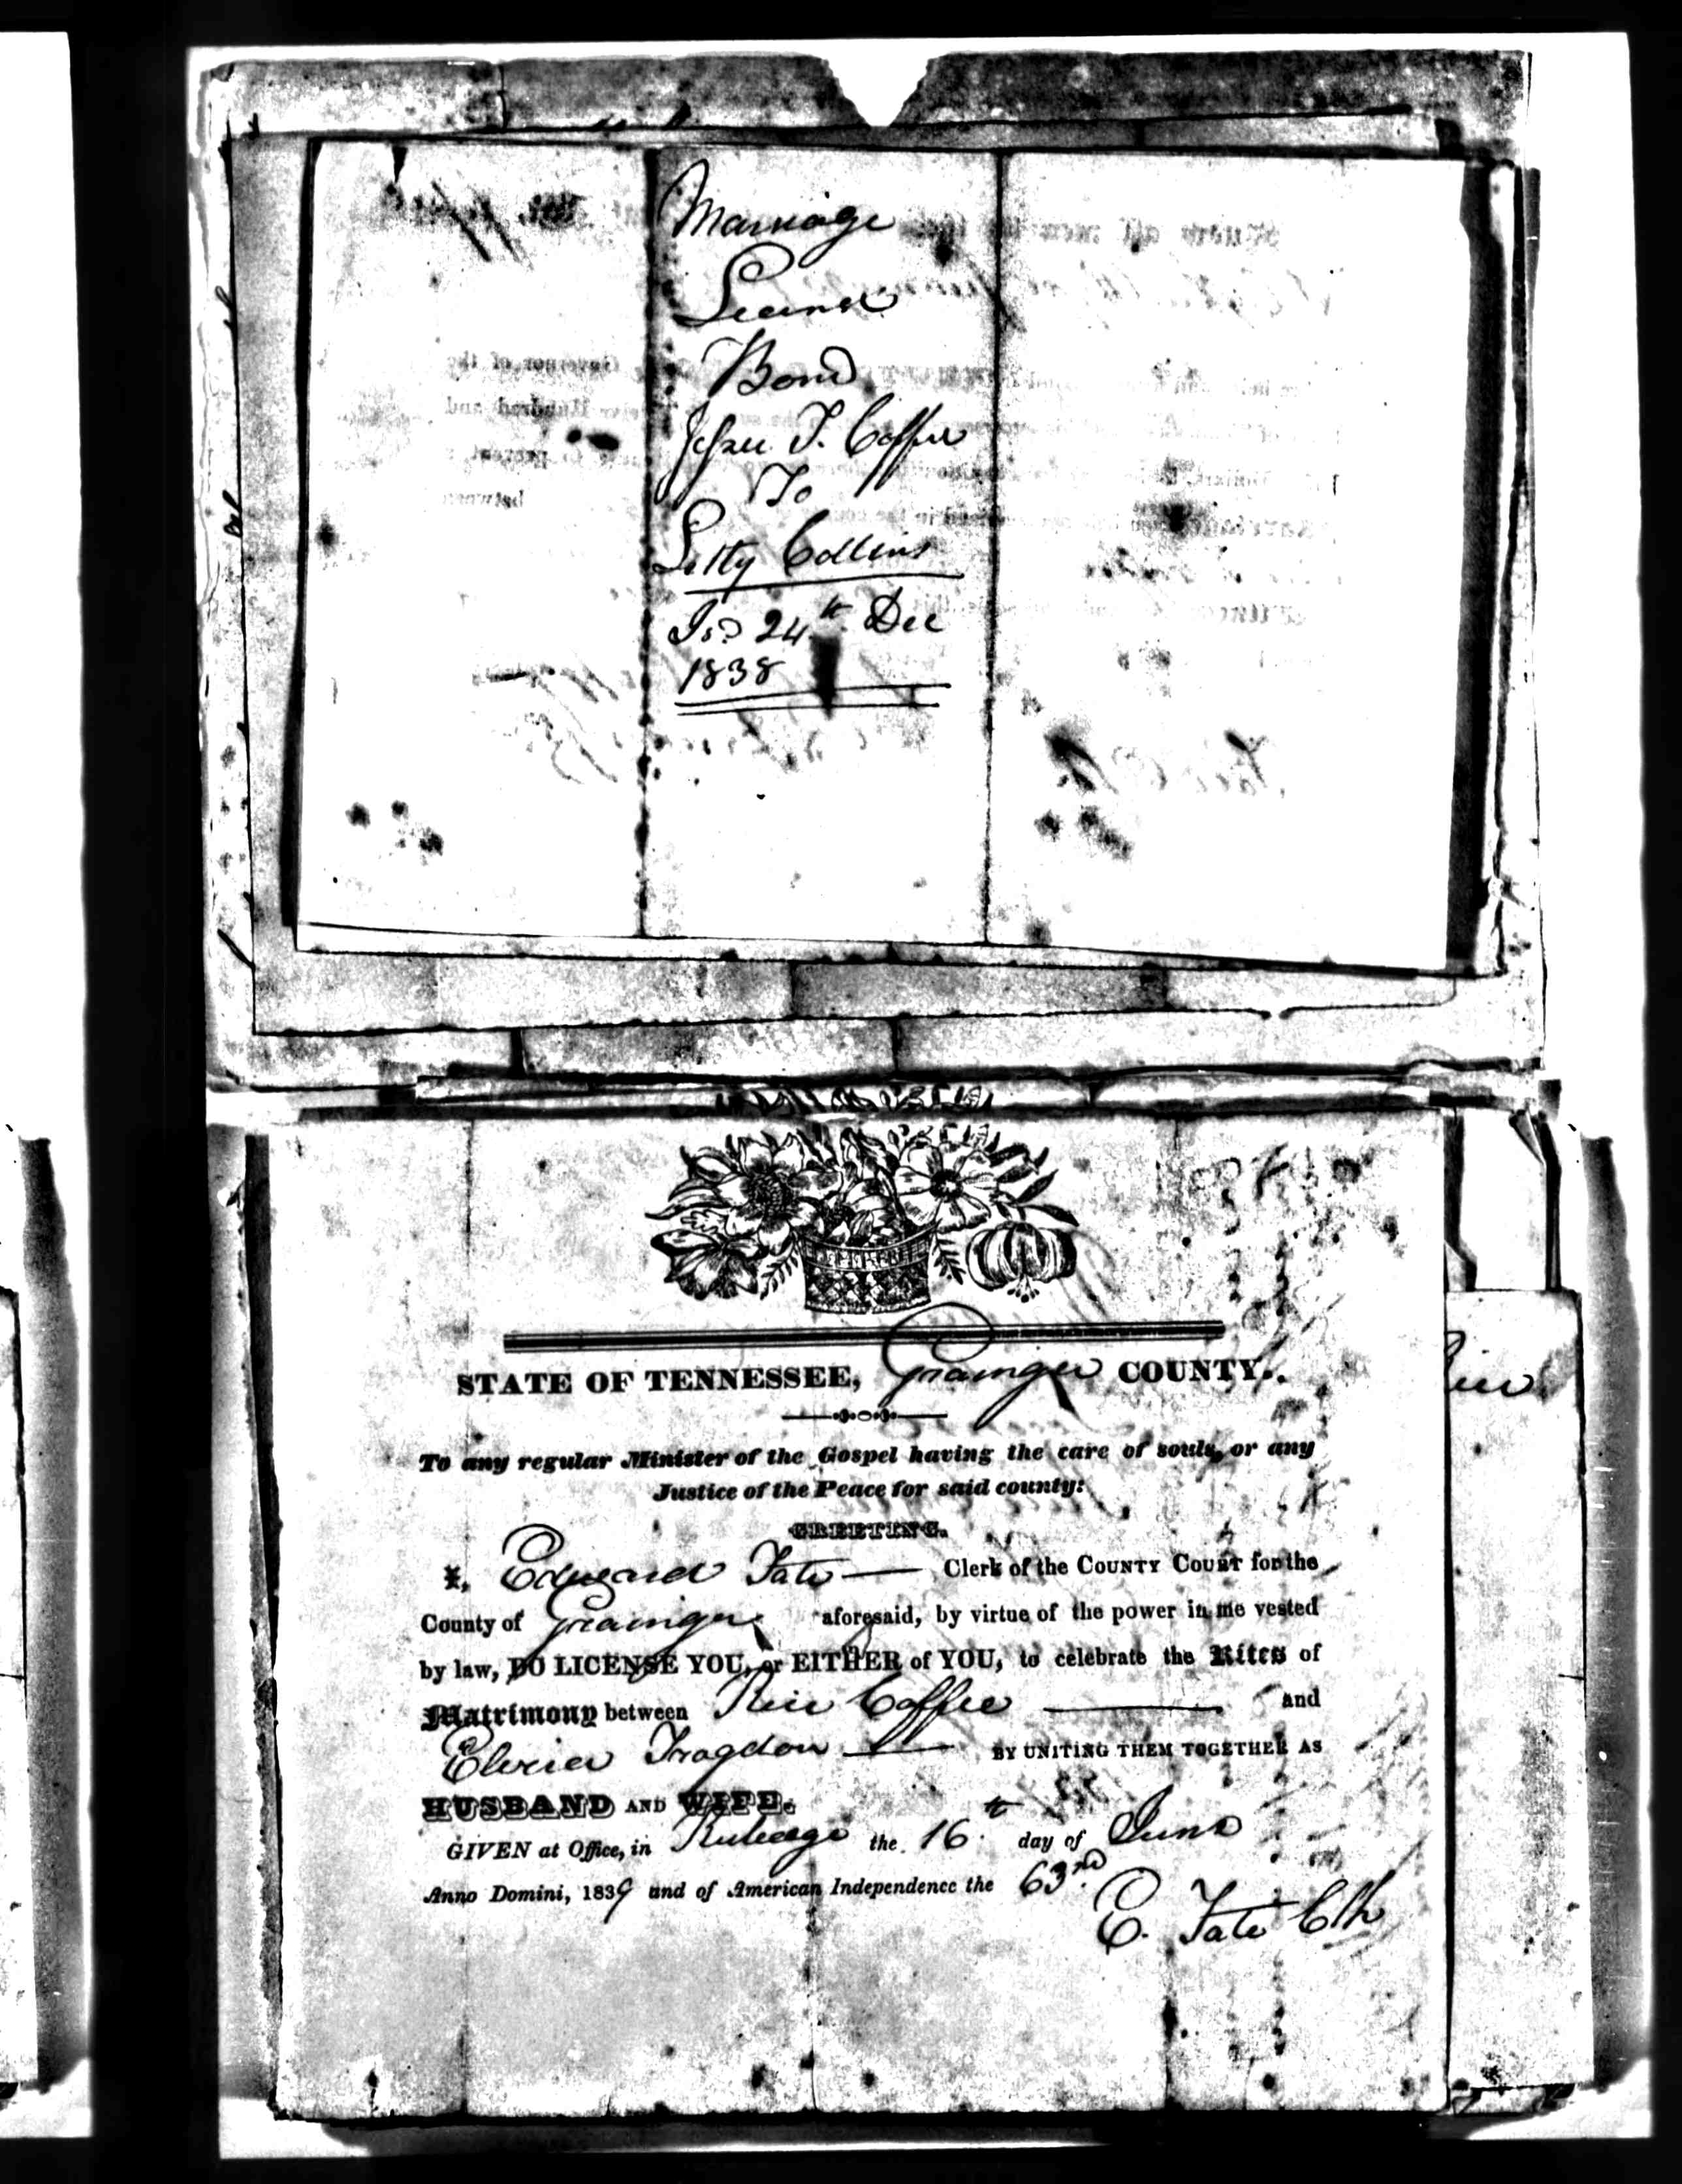 Marriage
License
Bond
Jesse T. Coffee
To
Letty Collins
Isd 24th Dec
1838
STATE OF TENNESSEE, Grainger COUNTY.
To any regular Minister of the Gospel having the care of souls, or any
Justice of the Peace for said county:
GREETING.
I, Edward Tate — Clerk of the COUNTY COURT for the
County of Grainger aforesaid, by virtue of the power in me vested
by law, DO LICENSE YOU, or EITHER of YOU, to celebrate the Rites of
Matrimony between Rice Coffee — and
Trogdon — BY UNITING THEM TOGETHER AS
HUSBAND AND WIFE.
GIVEN at Office, in Rutledge the 16th day of June
Anno Domini, 1839 and of American Independence the 63rd.
E. Tate Clk